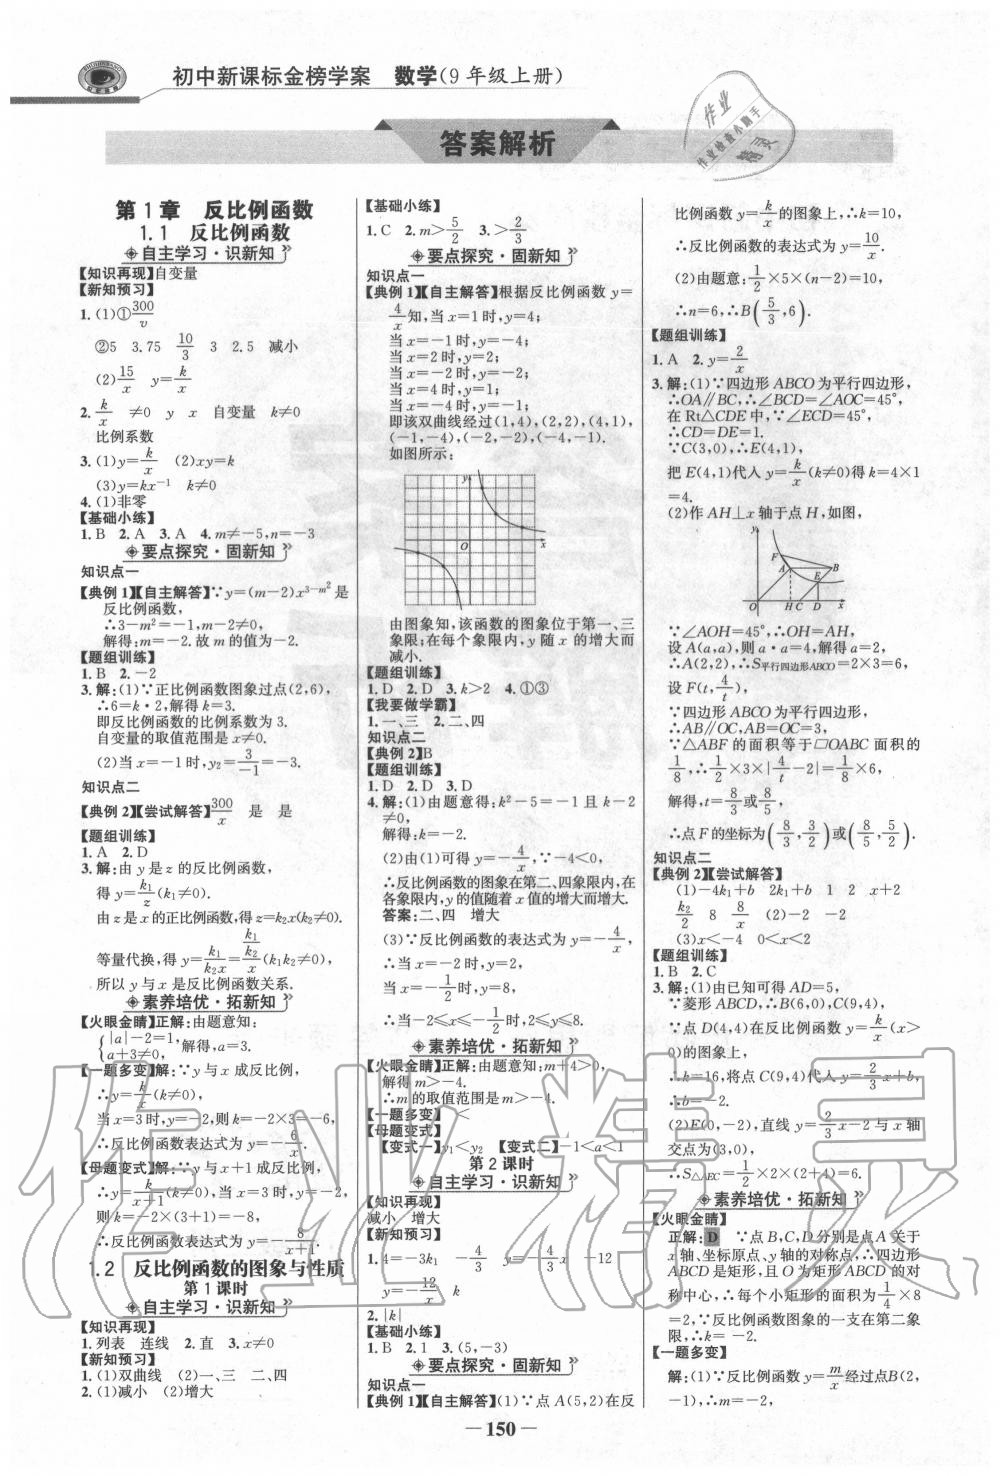 初中新课标金榜学案 数学(9年级上册)
答案解析
作业
作业检查小助手
精灵
第1章 反比例函数
1.1 反比例函数
自主学习·识新知
【知识再现】自变量
【新知预习】
1. (1)①300/v
②5 3.75 10/3 3 2.5 减小
(2)15/x y=k/x
2. k/x ≠0 y x 自变量 k≠0
比例系数
3. (1)y=k/x (2)xy=k
(3)y=kx⁻¹ k≠0
4. (1)非零
【基础小练】
1. B 2. A 3. A 4. m≠-5,n=-3
要点探究·固新知
知识点一
【典例1】【自主解答】∵y=(m-2)x^(3-m²)是
反比例函数,
∴3-m²=-1,m-2≠0,
解得:m=-2.故m的值为-2.
【题组训练】
1. B 2. -2
3. 解:(1)∵正比例函数图象过点(2,6),
∴6=k·2,解得k=3.
即反比例函数的比例系数为3.
自变量的取值范围是x≠0.
(2)当x=-1时,y₂=3/-1=-3.
知识点二
【典例2】【尝试解答】300/x 是 是
【题组训练】
1. A 2. D
3. 解:由y是z的反比例函数,
得y=k₁/z(k₁≠0).
由z是x的正比例函数,得z=k₂x(k₂≠0).
等量代换,得y=k₁/k₂x=(k₁/k₂)/x(k₁k₂≠0),
所以y与x是反比例函数关系.
素养培优·拓新知
【火眼金睛】正解:由题意知:
{|a|-2=1,
a+3≠0, 解得,a=3.
【一题多变】解:∵y与x成反比例,
∴y=k/x(k≠0),
当x=3时,y=-2,则k=-2×3=-6,
∴反比例函数表达式为y=-6/x.
【母题变式】解:∵y与x+1成反比例,
∴y=k/(x+1)(k≠0),当x=3时,y=-2,
则k=-2×(3+1)=-8,
∴反比例函数表达式为y=-8/(x+1).
1.2 反比例函数的图象与性质
第1课时
自主学习·识新知
【知识再现】
1. 列表 连线 2. 直 3. x≠0
【新知预习】
1. (1)双曲线 (2)一、三 二、四
2. (1)减小 (2)增大
【基础小练】
1. C 2. m>5/2 3. >2/3
要点探究·固新知
知识点一
【典例1】【自主解答】根据反比例函数y=
4/x知,当x=1时,y=4;
当x=-1时,y=-4;
当x=2时,y=2;
当x=-2时,y=-2;
当x=4时,y=1;
当x=-4时,y=-1;
即该双曲线经过(1,4),(2,2),(4,1),
(-1,-4),(-2,-2),(-4,-1).
如图所示:
y
O
x
由图象知,该函数的图象位于第一、三
象限;在每个象限内,y随x的增大而
减小.
【题组训练】
1. D 2. D 3. k>2 4. ①③
【我要做学霸】
1. 一、三 2. 二、四
知识点二
【典例2】B
【题组训练】
1. D 2. D 3. D
4. 解:(1)由题意得:k²-5=-1且k-2
≠0,
解得:k=-2.
(2)由(1)可得y=-4/x,∵-4<0,
∴反比例函数的图象在第二、四象限内,在
各象限内,y的值随着x值的增大而增大.
答案:二、四 增大
(3)∵反比例函数的表达式为y=-4/x,
∴当x=-2时,y=2,
当x=-1/2时,y=8,
∴当-2≤x≤-1/2时,2≤y≤8.
素养培优·拓新知
【火眼金睛】正解:由题意知:m+4>0,
解得m>-4.
∴m的取值范围是m>-4.
【一题多变】<
【母题变式】
【变式一】y₁<y₂ 【变式二】-1<a<1
第2课时
自主学习·识新知
【知识再现】
减小 增大
【新知预习】
1. 4=-3k₁ -4/3 y=-4/3x -12
y=-12/x k
2. |k|
【基础小练】
1. B 2. 1 3. (5,-3)
要点探究·固新知
知识点一
【典例1】【自主解答】(1)∵点A(5,2)在反
比例函数y=k/x的图象上,∴k=10,
∴反比例函数的表达式为y=10/x.
(2)由题意:1/2×5×(n-2)=10,
∴n=6,∴B(5/3,6).
【题组训练】
1. A 2. y=2/x
3. 解:(1)∵四边形ABCO为平行四边形,
∴OA∥BC,∴∠BCD=∠AOC=45°,
在Rt△CDE中,∵∠ECD=45°,
∴CD=DE=1.
∵C(3,0),∴E(4,1),
把E(4,1)代入y=k/x(k≠0)得k=4×1
=4.
(2)作AH⊥x轴于点H,如图,
y
F
A
B
E
O H C D x
∵∠AOH=45°,∴OH=AH,
设A(a,a),则a·a=4,解得a=2,
∴A(2,2),∴S平行四边形ABCO=2×3=6,
设F(t,4/t),
∵四边形ABCO为平行四边形,
∴AB∥OC,AB=OC=3,
∵△ABF的面积等于□OABC面积的
1/8,∴1/2×3×|4/t-2|=1/8×6,
解得,t=8/3或8/5,
∴点F的坐标为(8/3,3/2)或(8/5,5/2).
知识点二
【典例2】【尝试解答】
(1)-4k₁+b 2k₁+b 1 2 x+2
k₂/2 8 8/x (2)-2 -2
(3)x<-4 0<x<2
【题组训练】
1. B 2. C
3. 解:(1)由已知可得AD=5,
∵菱形ABCD,∴B(6,0),C(9,4),
∵点D(4,4)在反比例函数y=k/x(x>
0)的图象上,
∴k=16,将点C(9,4)代入y=2/3x+b,
∴b=-2.
(2)E(0,-2),直线y=2/3x-2与x轴
交点为(3,0),
∴S△AEC=1/2×2×(2+4)=6.
素养培优·拓新知
【火眼金睛】
正解:D ∵点B,C,D分别是点A关于
x轴、坐标原点、y轴的对称点,∴四边形
ABCD是矩形,且O为矩形ABCD的对
称中心,∴每个小矩形的面积为1/4×8
=2,∵反比例函数图象的一支在第二象
限,∴k=-2.
【一题多变】
解:(1)∵反比例函数y=m/x经过点B(2,
-1),∴m=-2,
— 150 —
作业精灵